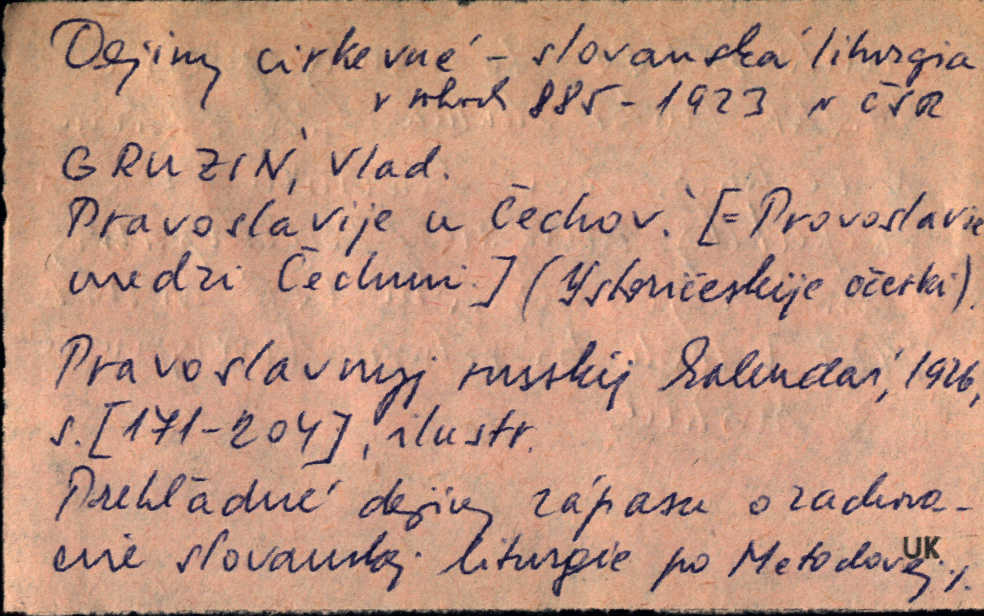 Dejiny cirkevné - slovanská liturgia
v rokoch 885-1923 v ČSR
GRUZIN, Vlad.
Pravoslavije u Čechov. [=Pravoslavie
medzi Čechmi.] (Ystoričeskije očerki).
Pravoslavnyj russkij kalendar, 1926,
s. [171-204], ilustr.
Prehľadné dejiny zápasu o zachova-
nie slovanskej liturgie po Metodovej ./.
UK